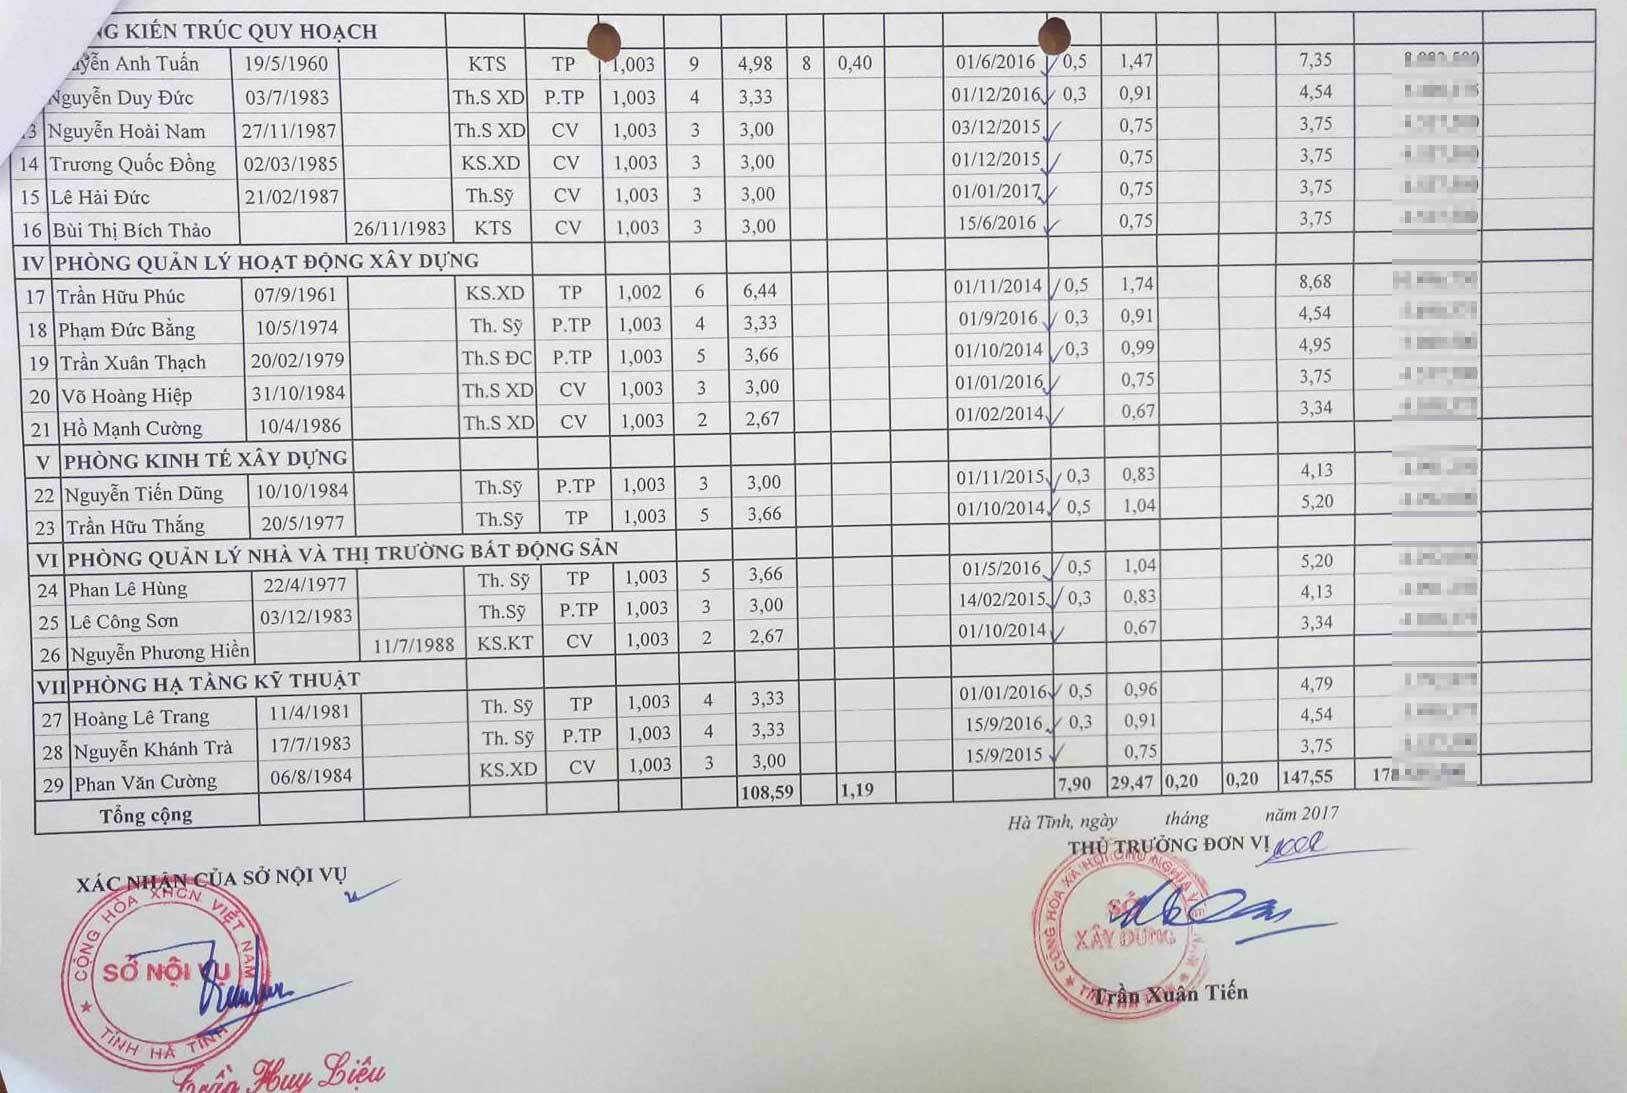 NG KIẾN TRÚC QUY HOẠCH
yễn Anh Tuấn 19/5/1960 KTS TP 1,003 9 4,98 8 0,40 01/6/2016 0,5 1,47 7,35
Nguyễn Duy Đức 03/7/1983 Th.S XD P.TP 1,003 4 3,33 01/12/2016 0,3 0,91 4,54
13 Nguyễn Hoài Nam 27/11/1987 Th.S XD CV 1,003 3 3,00 03/12/2015 0,75 3,75
14 Trương Quốc Đồng 02/03/1985 KS.XD CV 1,003 3 3,00 01/12/2015 0,75 3,75
15 Lê Hải Đức 21/02/1987 Th.Sỹ CV 1,003 3 3,00 01/01/2017 0,75 3,75
16 Bùi Thị Bích Thảo 26/11/1983 KTS CV 1,003 3 3,00 15/6/2016 0,75 3,75
IV PHÒNG QUẢN LÝ HOẠT ĐỘNG XÂY DỰNG
17 Trần Hữu Phúc 07/9/1961 KS.XD TP 1,002 6 6,44 01/11/2014 0,5 1,74 8,68
18 Phạm Đức Bằng 10/5/1974 Th. Sỹ P.TP 1,003 4 3,33 01/9/2016 0,3 0,91 4,54
19 Trần Xuân Thạch 20/02/1979 Th.S ĐC P.TP 1,003 5 3,66 01/10/2014 0,3 0,99 4,95
20 Võ Hoàng Hiệp 31/10/1984 Th.S XD CV 1,003 3 3,00 01/01/2016 0,75 3,75
21 Hồ Mạnh Cường 10/4/1986 Th.S XD CV 1,003 2 2,67 01/02/2014 0,67 3,34
V PHÒNG KINH TẾ XÂY DỰNG
22 Nguyễn Tiến Dũng 10/10/1984 Th.Sỹ P.TP 1,003 3 3,00 01/11/2015 0,3 0,83 4,13
23 Trần Hữu Thắng 20/5/1977 Th.Sỹ TP 1,003 5 3,66 01/10/2014 0,5 1,04 5,20
VI PHÒNG QUẢN LÝ NHÀ VÀ THỊ TRƯỜNG BẤT ĐỘNG SẢN
24 Phan Lê Hùng 22/4/1977 Th. Sỹ TP 1,003 5 3,66 01/5/2016 0,5 1,04 5,20
25 Lê Công Sơn 03/12/1983 Th.Sỹ P.TP 1,003 3 3,00 14/02/2015 0,3 0,83 4,13
26 Nguyễn Phương Hiền 11/7/1988 KS.KT CV 1,003 2 2,67 01/10/2014 0,67 3,34
VII PHÒNG HẠ TẦNG KỸ THUẬT
27 Hoàng Lê Trang 11/4/1981 Th. Sỹ TP 1,003 4 3,33 01/01/2016 0,5 0,96 4,79
28 Nguyễn Khánh Trà 17/7/1983 Th. Sỹ P.TP 1,003 4 3,33 15/9/2016 0,3 0,91 4,54
29 Phan Văn Cường 06/8/1984 KS.XD CV 1,003 3 3,00 15/9/2015 0,75 3,75
Tổng cộng 108,59 1,19 7,90 29,47 0,20 0,20 147,55 178
Hà Tĩnh, ngày tháng năm 2017
THỦ TRƯỞNG ĐƠN VỊ
XÁC NHẬN CỦA SỞ NỘI VỤ
CỘNG HÒA XHCN VIỆT NAM
SỞ NỘI VỤ
TỈNH HÀ TĨNH
Trần Huy Liệu
CỘNG HÒA XÃ HỘI CHỦ NGHĨA VIỆT NAM
SỞ
XÂY DỰNG
Trần Xuân Tiến